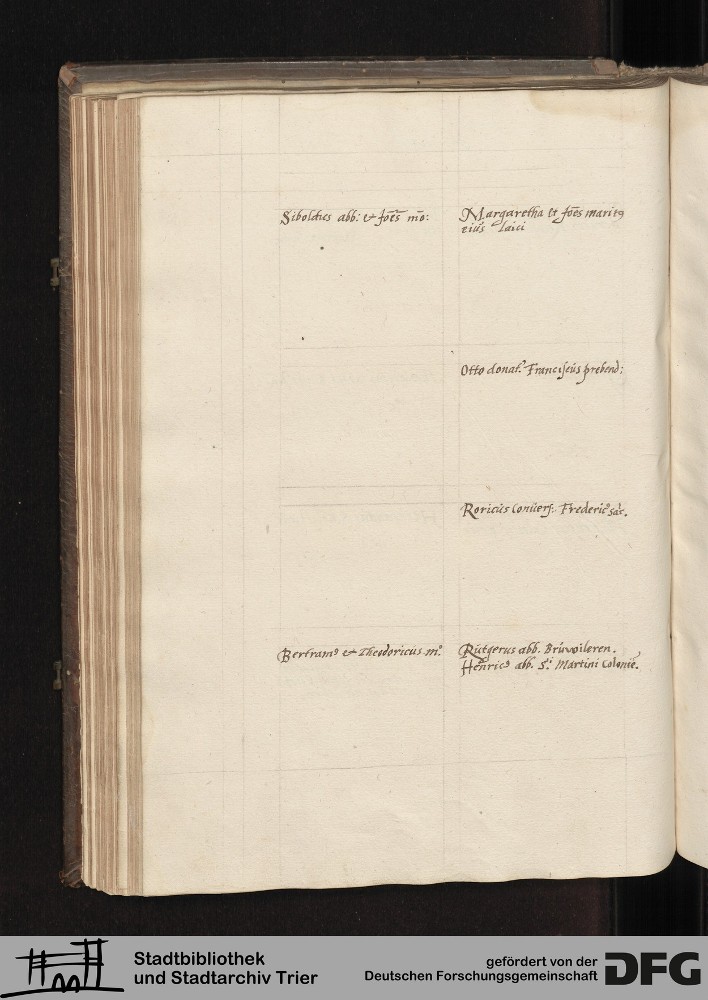 Siboldus abb: et Joēs mō:
Margaretha et Joēs maritꝯ
eiús laici
Otto donat. Franciscús prebend:
Roricús Conuers: Frederic9 sac.
Bertram9 et Theodoricus m°.
Rútgerus abb. Brúwileren.
Henric9 abb. S.ti Martini Colonie.
Stadtbibliothek
und Stadtarchiv Trier
gefördert von der
Deutschen Forschungsgemeinschaft
DFG